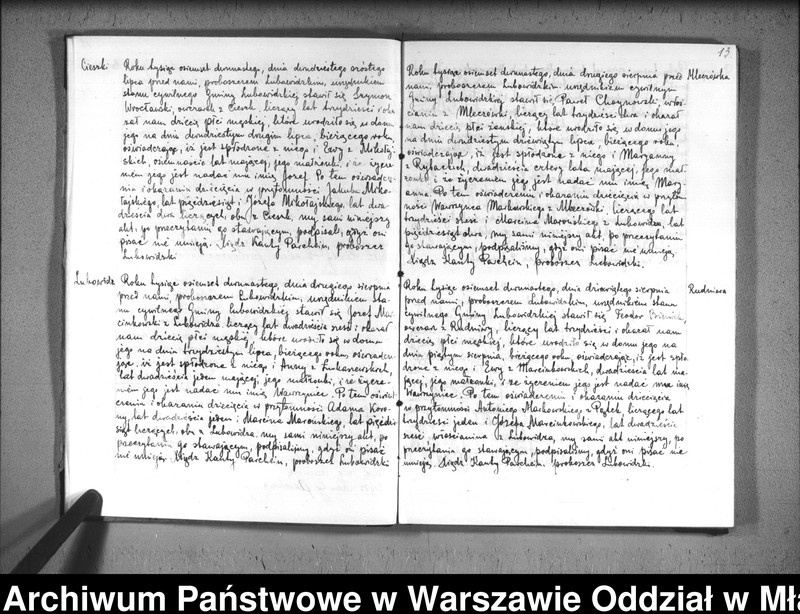 Cierski
Roku tysiąc osiemset dwunastego, dnia dwudziestego szóstego
lipca przed nami, proboszczem Lubowidzkim, urzędnikiem
stanu cywilnego Gminy Lubowidzkiej stawił się Szymon
Wrocławski, owczarz z Ciersk, liczący lat trzydzieści i oka-
zał nam dziecię płci męskiej, które urodziło się w domu
jego na dniu dwudziestym drugim lipca, bieżącego roku,
oświadczając, iż jest spłodzone z niego i Ewy z Mikołaj-
skich, osiemnaście lat mającej, jego małżonki, i że życze-
niem jego jest nadać mu imię Józef. Po tem oświadcze-
niu i okazaniu dziecięcia w przytomności Jakuba Miko-
łajskiego, lat pięćdziesiąt i Józefa Mikołajskiego, lat dwa-
dzieścia dwa liczących, obu z Ciersk, my sami niniejszy
akt, po przeczytaniu go stawającym, podpisali, gdyż oni
pisać nie umieją. Xiądz Kanty Parchem, proboszcz
Lubowidzki
Lubowidz
Roku tysiąc osiemset dwunastego, dnia drugiego sierpnia
przed nami, proboszczem Lubowidzkim, urzędnikiem sta-
nu cywilnego Gminy Lubowidzkiej stawił się Józef Mar-
cinkowski z Lubowidza, liczący lat dwadzieścia sześć i okazał
nam dziecię płci męskiej, które urodziło się w domu
jego na dniu trzydziestym lipca, bieżącego roku, oświadcza-
jąc, iż jest spłodzone z niego i Anny z Łukaszewskich,
lat dwadzieścia jeden mającej, jego małżonki, i że życze-
niem jego jest nadać mu imię Wawrzyniec. Po tem oświad-
czeniu i okazaniu dziecięcia w przytomności Adama Koro-
ny, lat dwadzieścia jeden i Marcina Marońskiego, lat pięćdzie-
siąt liczących, obu z Lubowidza, my sami niniejszy akt, po
przeczytaniu go stawającym, podpisaliśmy, gdyż oni pisać
nie umieją. Xiądz Kanty Parchem, proboszcz Lubowidzki
13
Roku tysiąc osiemset dwunastego, dnia drugiego sierpnia przed
Mleczówka
nami, proboszczem Lubowidzkim urzędnikiem cywilnym
Gminy Lubowidzkiej stawił się Paweł Choynowski, włoś-
cianin z Mleczówki, liczący lat trzydzieści dwa i okazał
nam dziecię płci żeńskiej, które urodziło się w domu jego
na dniu dwudziestym dziewiątym lipca, bieżącego roku,
oświadczając, iż jest spłodzone z niego i Maryanny
z Rybackich, dwadzieścia cztery lata mającej, jego mał-
żonki i że życzeniem jego jest nadać mu imię Mary-
anna. Po tem oświadczeniu i okazaniu dziecięcia w przytom-
ności Wawrzyńca Markowskiego z Mleczówki, liczącego lat
trzydzieści sześć i Marcina Marońskiego z Lubowidza, lat
pięćdziesiąt obu, my sami niniejszy akt, po przeczytaniu
go stawającym, podpisaliśmy, gdyż oni pisać nie umieją.
Xiądz Kanty Parchem, proboszcz Lubowidzki.
Roku tysiąc osiemset dwunastego, dnia dziewiątego sierpnia
Rudniwa
przed nami, proboszczem Lubowidzkim, urzędnikiem stanu
cywilnego Gminy Lubowidzkiej stawił się Teodor
owczarz z Rudniwy, liczący lat trzydzieści i okazał nam
dziecię płci męskiej, które urodziło się w domu jego na
dniu piątym sierpnia, bieżącego roku, oświadczając, iż jest spło-
dzone z niego i Ewy z Marcinkowskich, dwadzieścia lat ma-
jącej, jego małżonki, i że życzeniem jego jest nadać mu imię
Wawrzyniec. Po tem oświadczeniu i okazaniu dziecięcia
w przytomności Antoniego Markowskiego z Pątek, liczącego lat
trzydzieści jeden i Józefa Marcinkowskiego, lat dwadzieścia
sześć, włościanina z Lubowidza, my sami akt niniejszy, po
przeczytaniu go stawającym, podpisaliśmy, gdyż oni pisać nie
umieją. Xiądz Kanty Parchem, proboszcz Lubowidzki.
Archiwum Państwowe w Warszawie Oddział w Mła